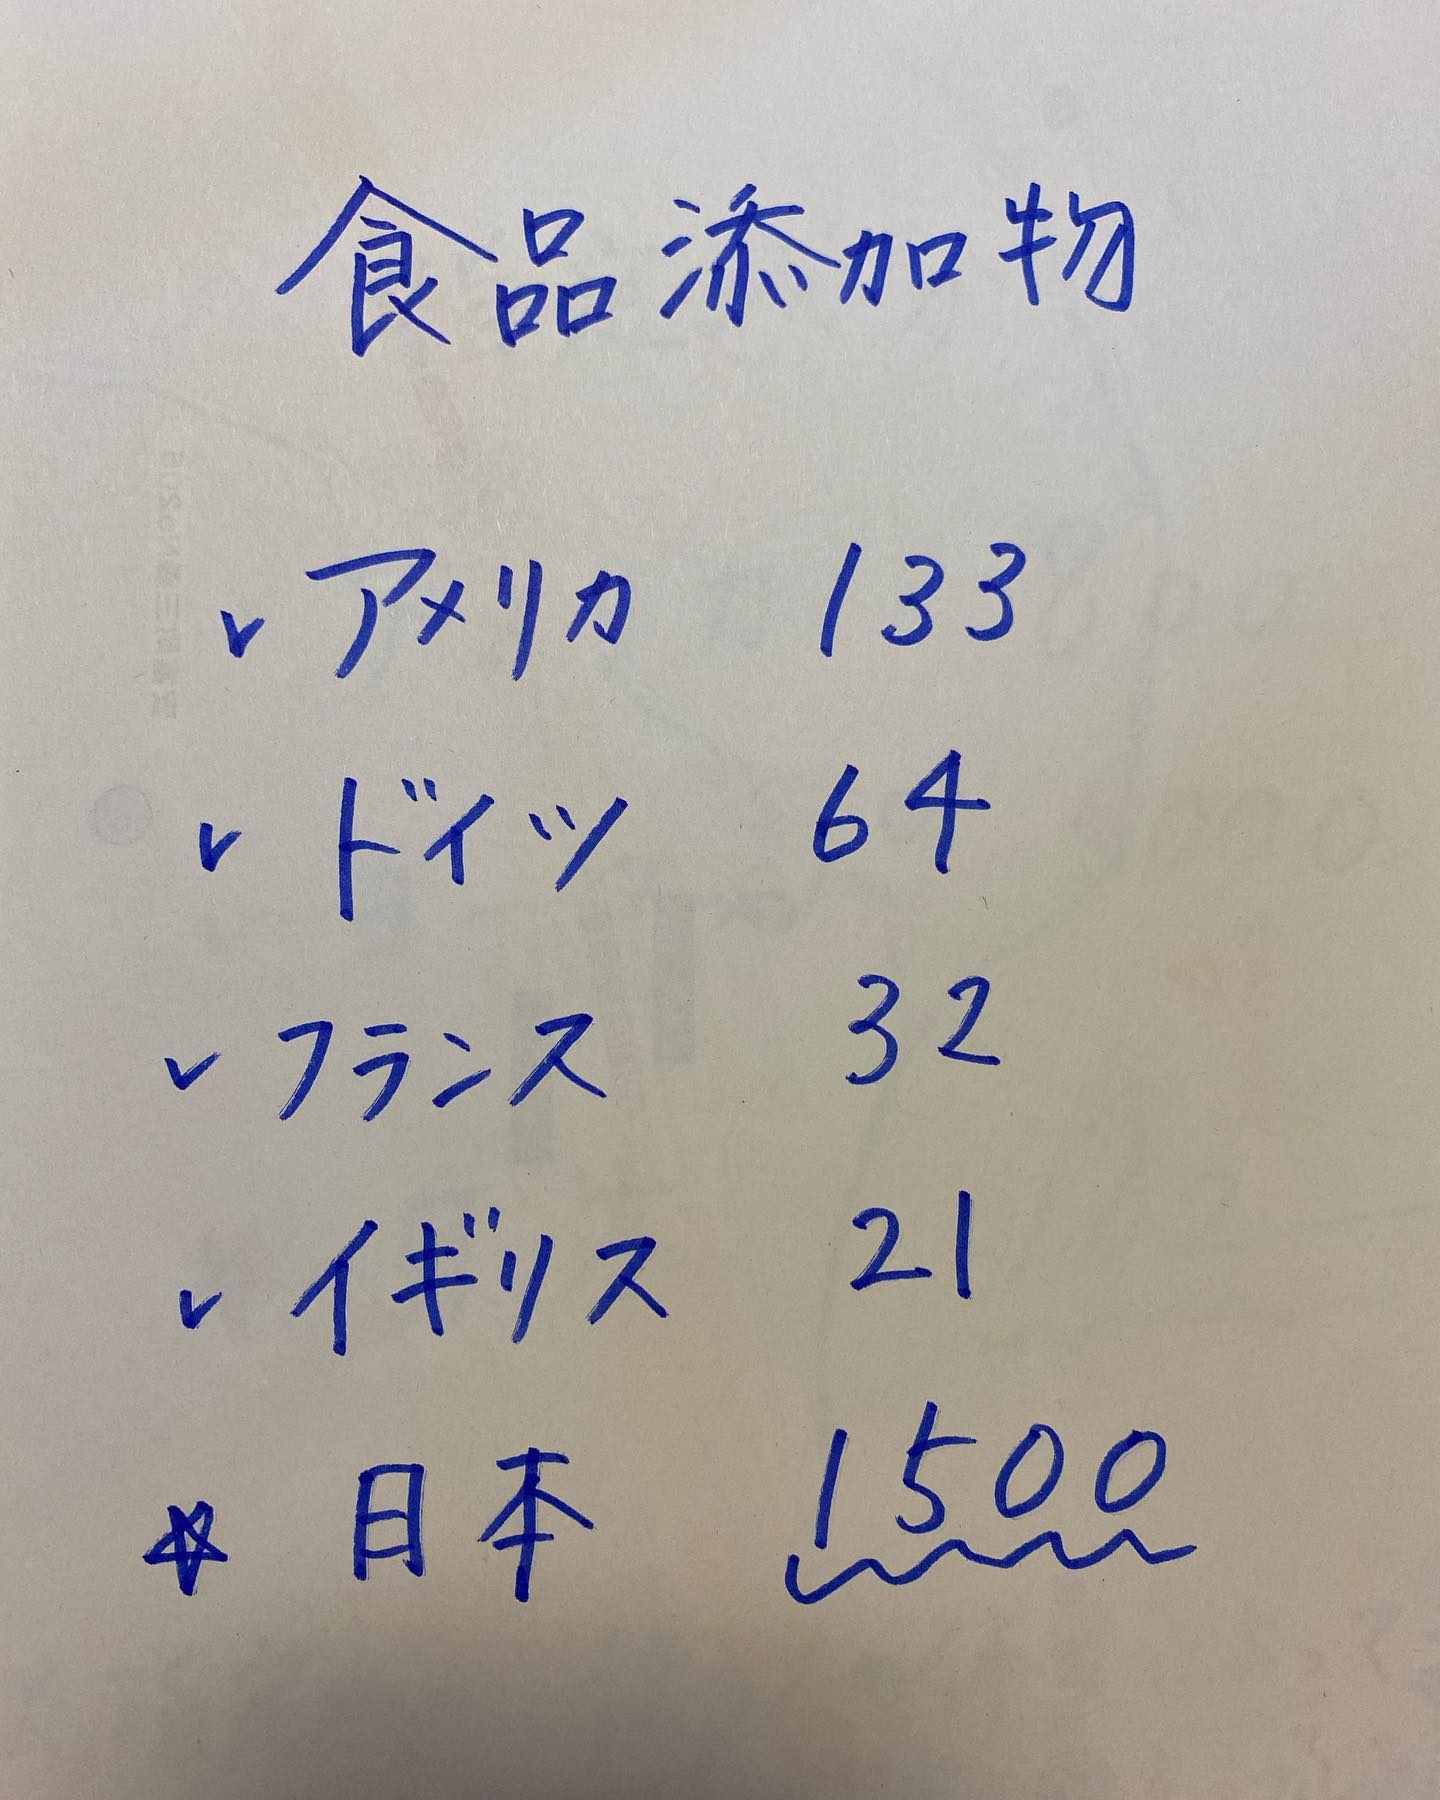 食品添加物
✓ アメリカ 133
✓ ドイツ 64
✓ フランス 32
✓ イギリス 21
☆ 日本 1500